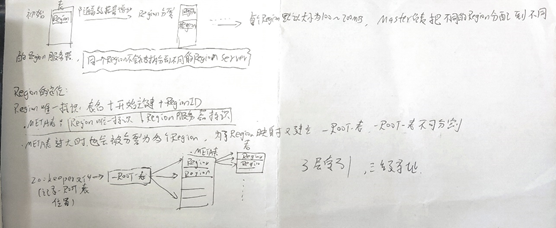 初始 表 Region
随着数据量增加 Region分裂
…… 每个Region默认大小为100~200MB, Master负责把不同的Region分配到不同
的Region服务器, 同一个Region不会被拆分到不同的Region Server
Region的定位:
Region唯一标识: 表名+开始主键+RegionID
.META表: Region唯一标识 | Region服务器标识
.META表较大时,也会被分裂为多个Region, 为了Region映射又建立 -ROOT-表, -ROOT-表不可分割
.META表
表
Region
Region
Region
Region
Zookeeper文件
(记录-ROOT表
位置)
-ROOT-表
3层索引, 三级寻址